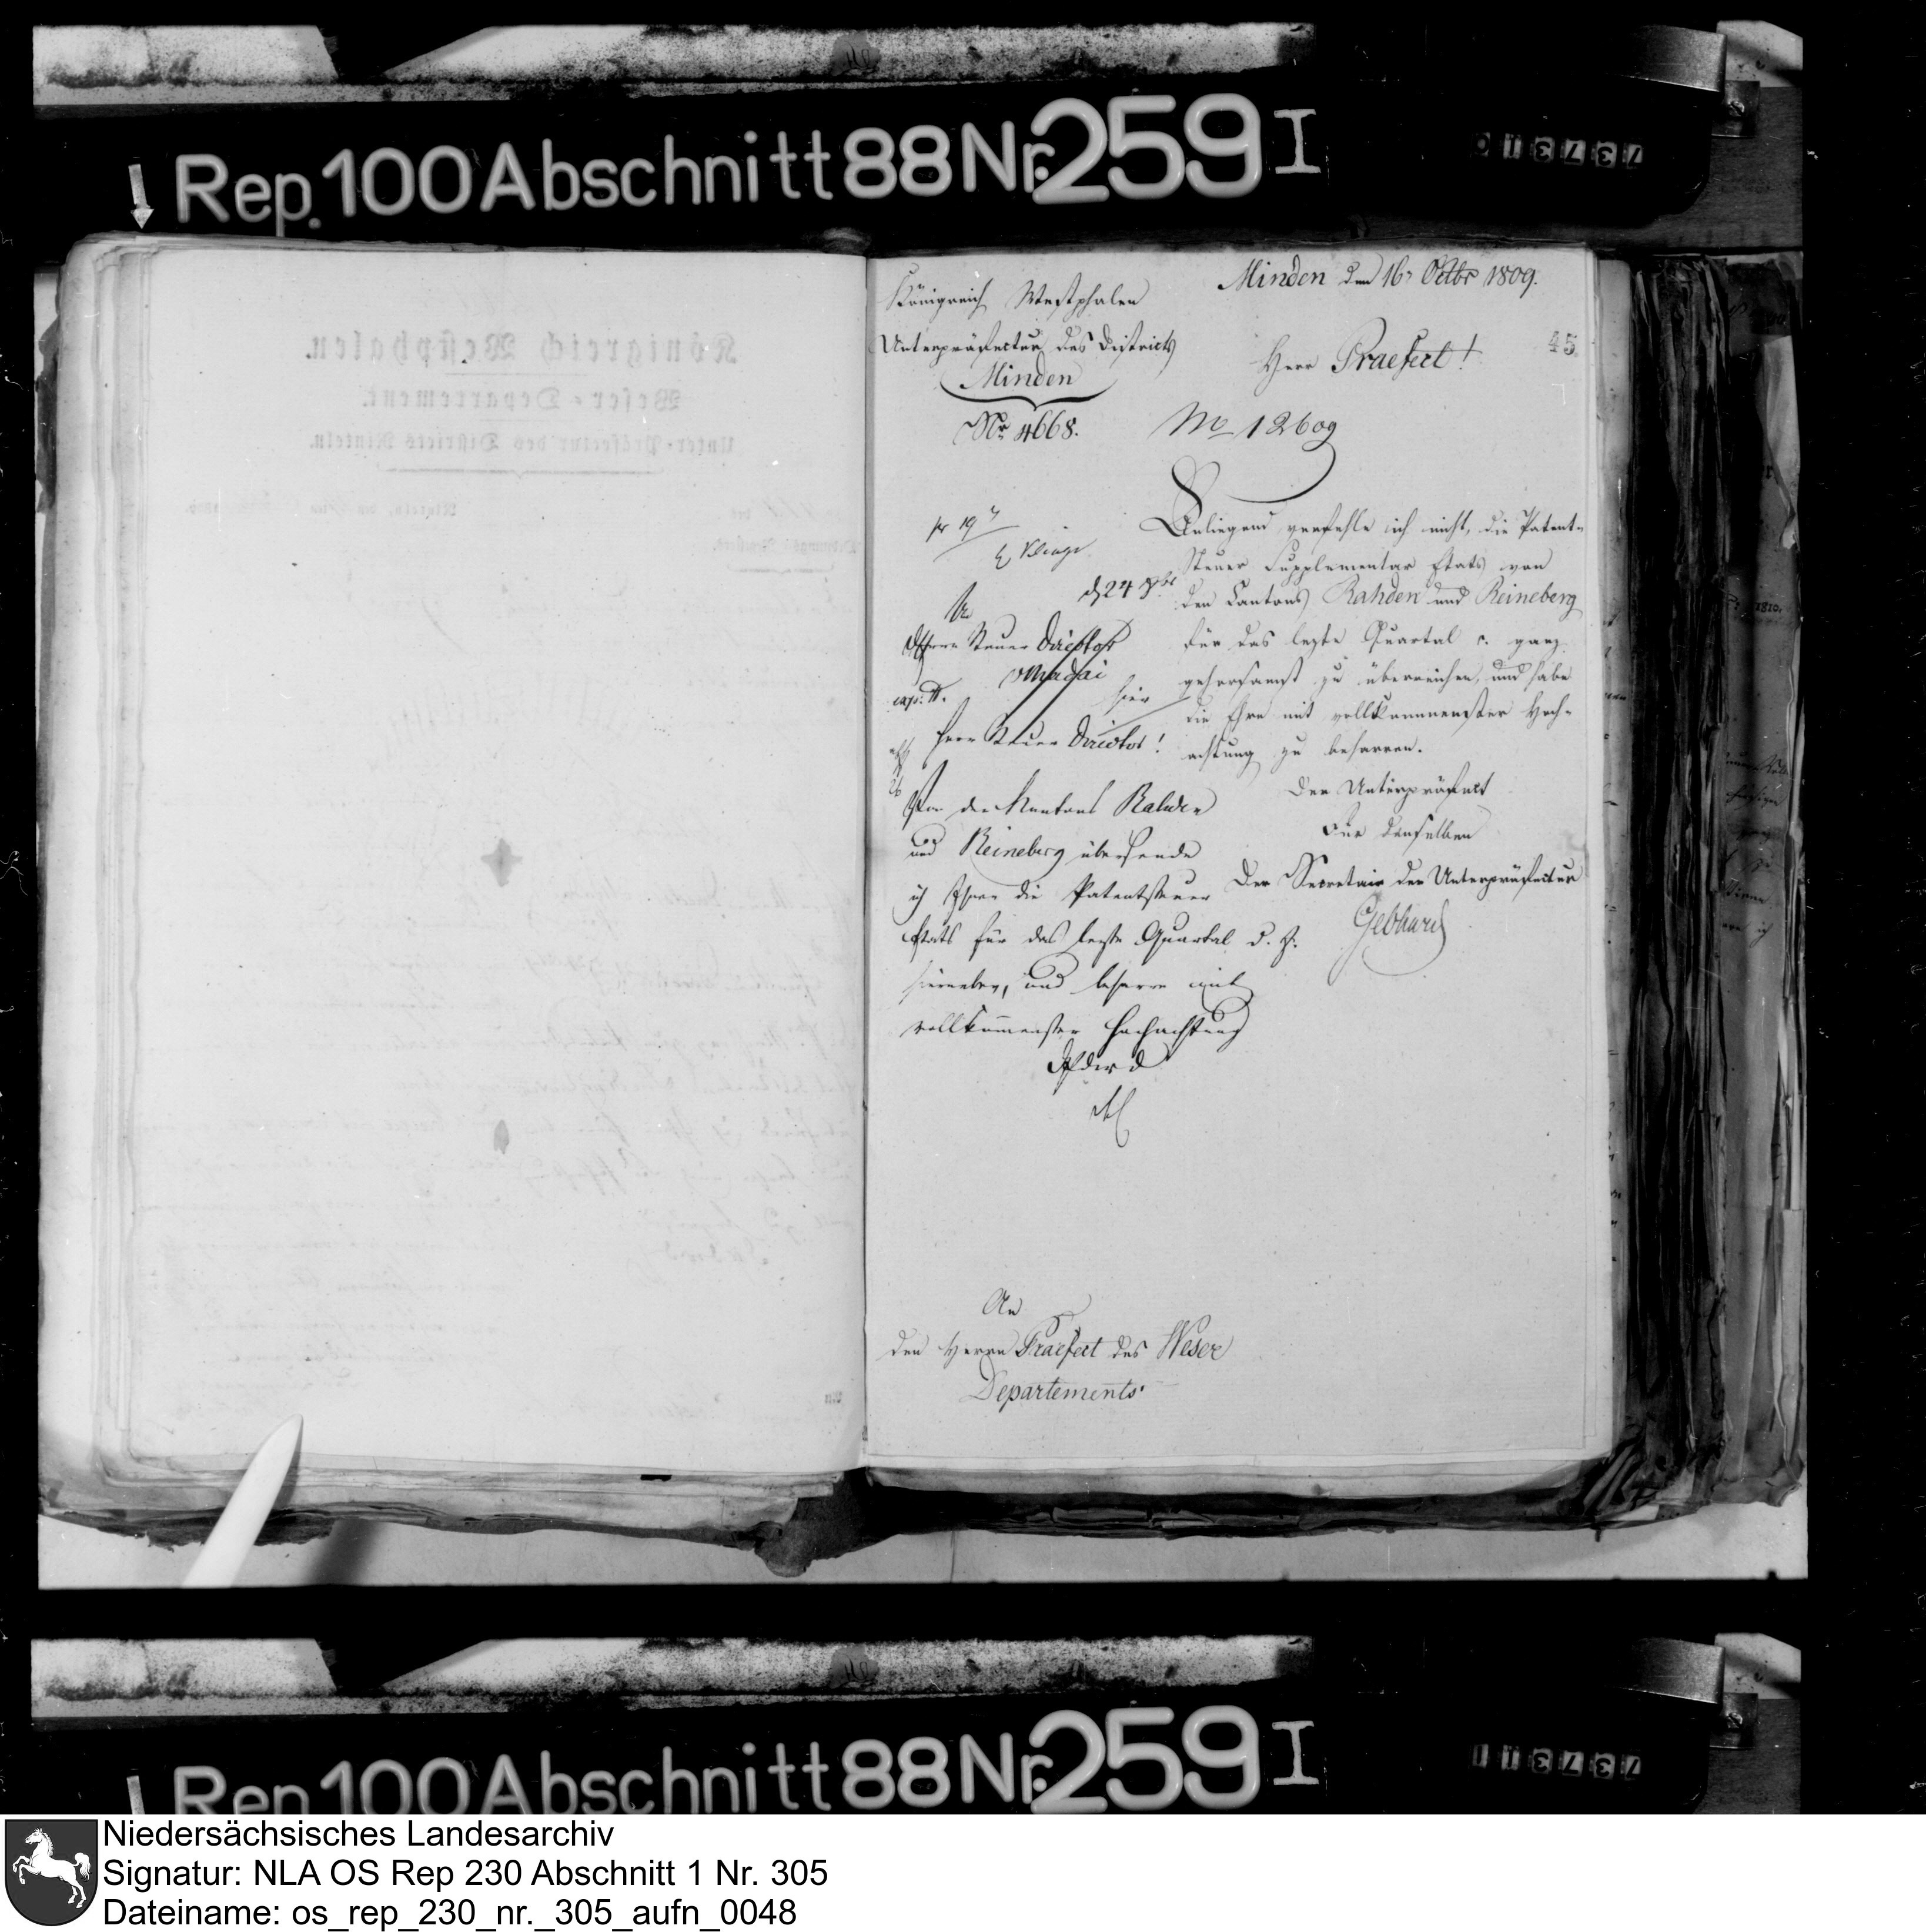 Rep. 100 Abschnitt 88 Nr. 259 I
Königreich Westphalen
Unterpräfectur des Districts
Minden
Nr. 4668.
Minden den 16. Octbr 1809.
45
Herr Praefect!
No 12609
Anliegend verfehle ich nicht, die Patent-
Steuer Supplementar Etats von
den Cantons Rahden und Reineberg
für das lezte Quartal c. ganz
gehorsamst zu überreichen, und habe
die Ehre mit vollkommenster Hoch-
achtung zu beharren.
Der Unterpräfect
Für denselben
Der Secretair der Unterpräfectur
Gebhard
d 24 8br
An
Herrn Steuer Director
v Madai
hier
Herr Steuer Director!
Von den Kantons Rahden
und Reineberg übersende
ich Ihnen die Patentsteuer
Etats für das lezte Quartal d. J.
hierneben, und beharre mit
vollkommenster Hochachtung
D P d W D
An
den Herrn Praefect des Weser
Departements.
Königreich Westphalen.
Weser-Departement.
Unter-Präfectur des Districts Rinteln.
Rep. 100 Abschnitt 88 Nr. 259 I
Niedersächsisches Landesarchiv
Signatur: NLA OS Rep 230 Abschnitt 1 Nr. 305
Dateiname: os_rep_230_nr._305_aufn_0048